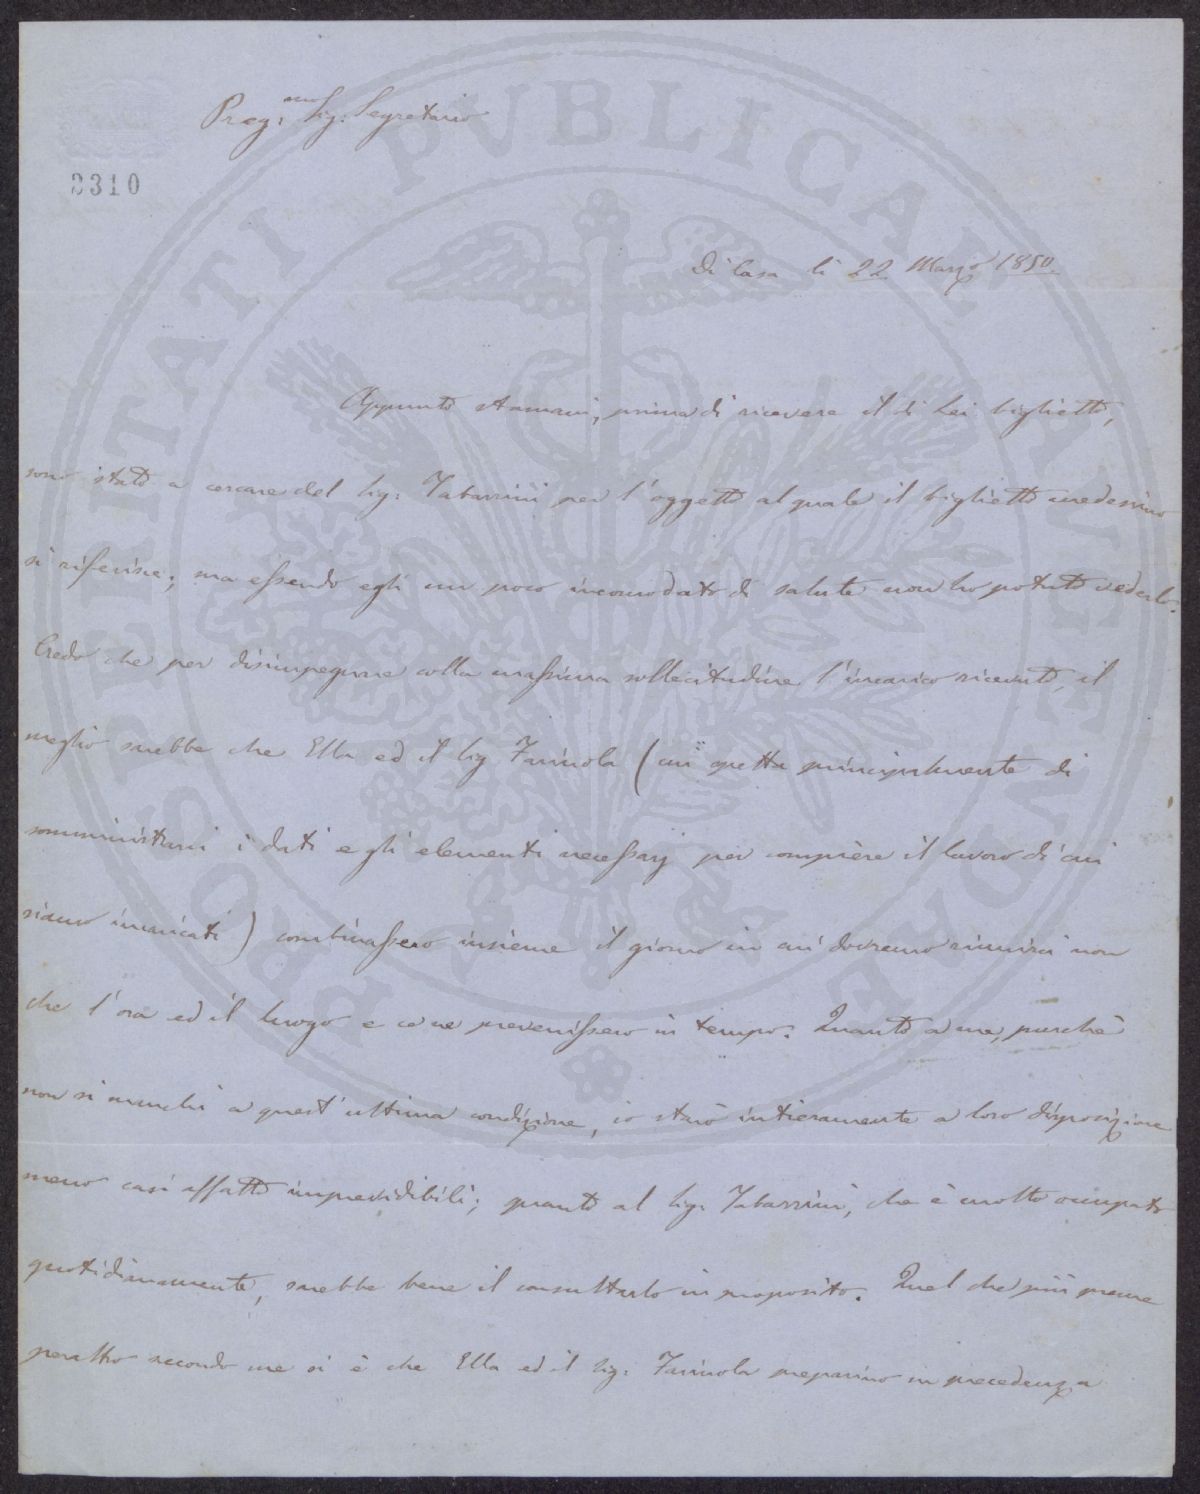 Preg.mo Sig: Segretario
2310
Di Casa li 22 Marzo 1850.
Appunto stamani, prima di ricevere il di Lei biglietto,
sono stato a cercare del Sig: Tabarrini per l'oggetto al quale il biglietto medesimo
si riferisce; ma essendo egli un poco incomodato di salute non ho potuto vederlo.
Credo che per disimpegnare colla massima sollecitudine l'incarico ricevuto, il
meglio sarebbe che Ella ed il Sig Farinola (cui spetta principalmente di
somministrarci i dati e gli elementi necessarj per compiere il lavoro di cui
siamo incaricati) combinassero insieme il giorno in cui dovremo riunirci non
che l'ora ed il luogo e ce ne prevenissero in tempo. Quanto a me, purchè
non si manchi a quest'ultima condizione, io starò intieramente a loro disposizione
meno casi affatto imprevidibili; quanto al Sig: Tabarrini, che è molto occupato
quotidianamente, sarebbe bene il consultarlo in proposito. Quel che più preme
peraltro secondo me si è che Ella ed il Sig: Farinola preparino in precedenza
PROSPERITATI PUBLICAE AUGENDAE